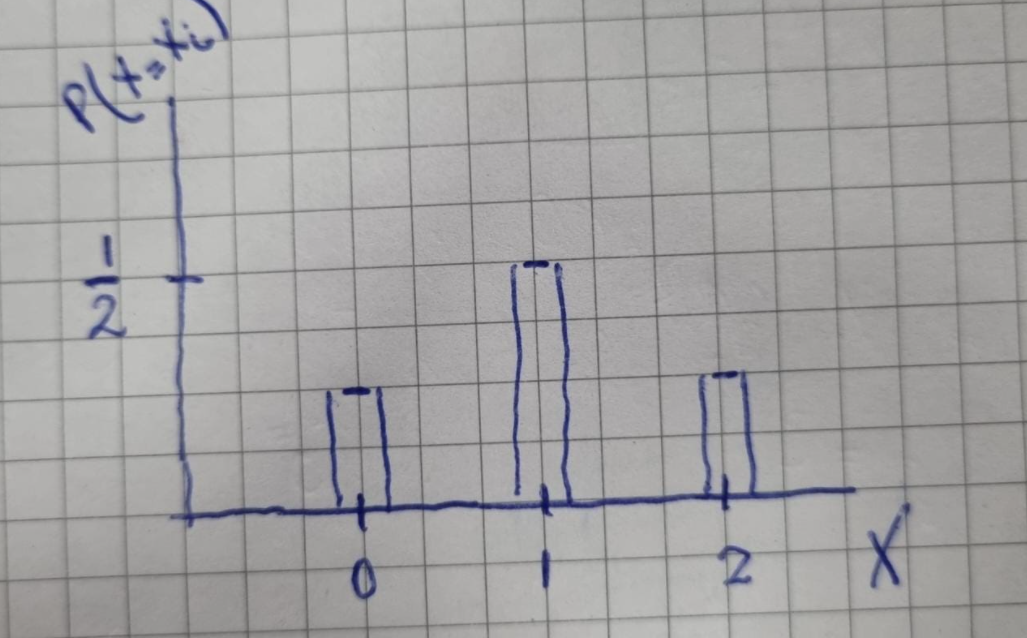 P(x=xi)
1
2
0 1 2 X